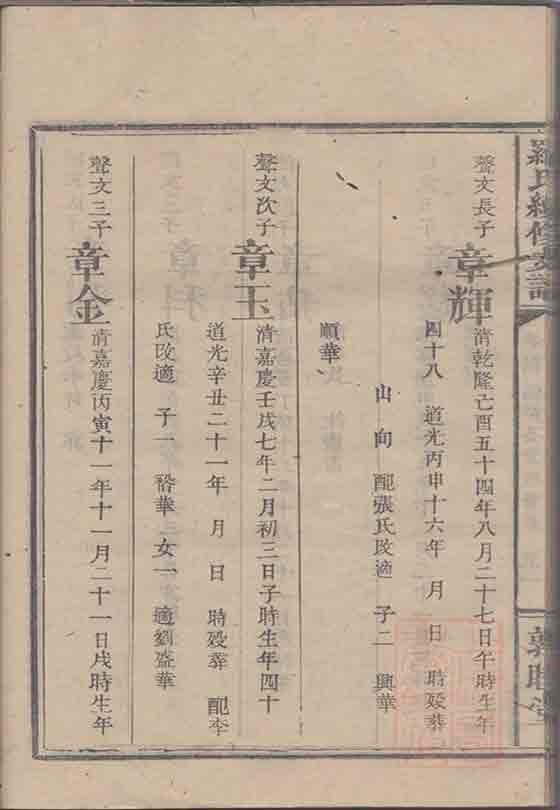 羅氏續修支譜
聲文長子 章輝 清乾隆亡酉五十四年八月二十七日午時生年
四十八 道光丙申十六年 月 日 時殁葬
山 向 配張氏改適 子二 興華
順華
聲文次子 章玉 清嘉慶壬戌七年二月初三日子時生年四十
道光辛丑二十一年 月 日 時殁葬 配李
氏改適 子一 喬華 女一 適劉盛華
聲文三子 章金 清嘉慶丙寅十一年十一月二十一日戌時生年